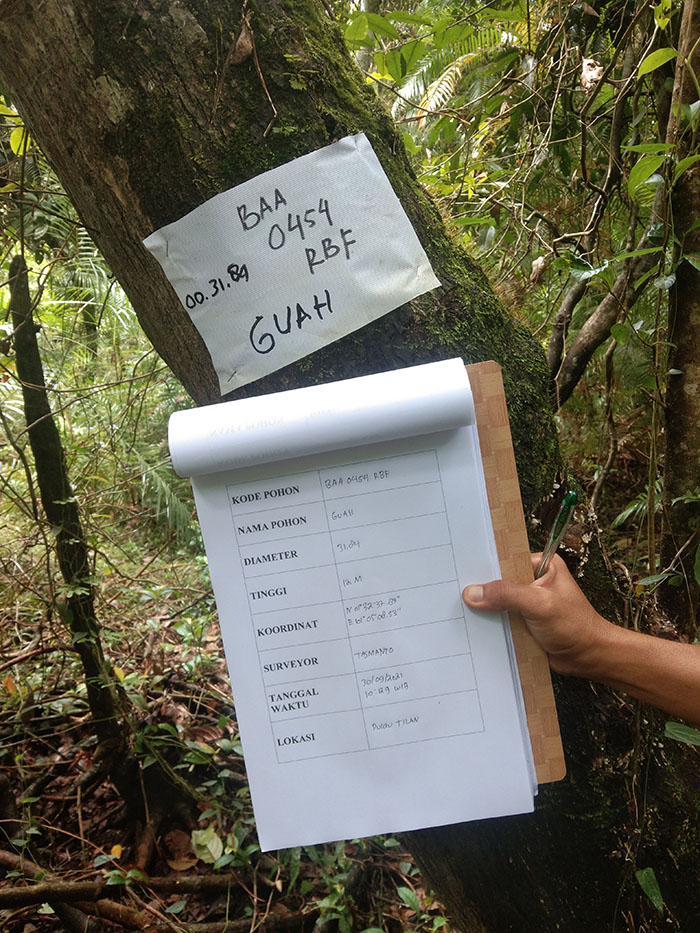 BAA
0454
RBF
00.31.84
GUAH
KODE POHON BAA 0454 RBF
NAMA POHON GUAH
DIAMETER 31.84
TINGGI 12 M
KOORDINAT
SURVEYOR TASMANTO
TANGGAL WAKTU 30/09/2021
10:29 WIB
LOKASI PULAU TILAN